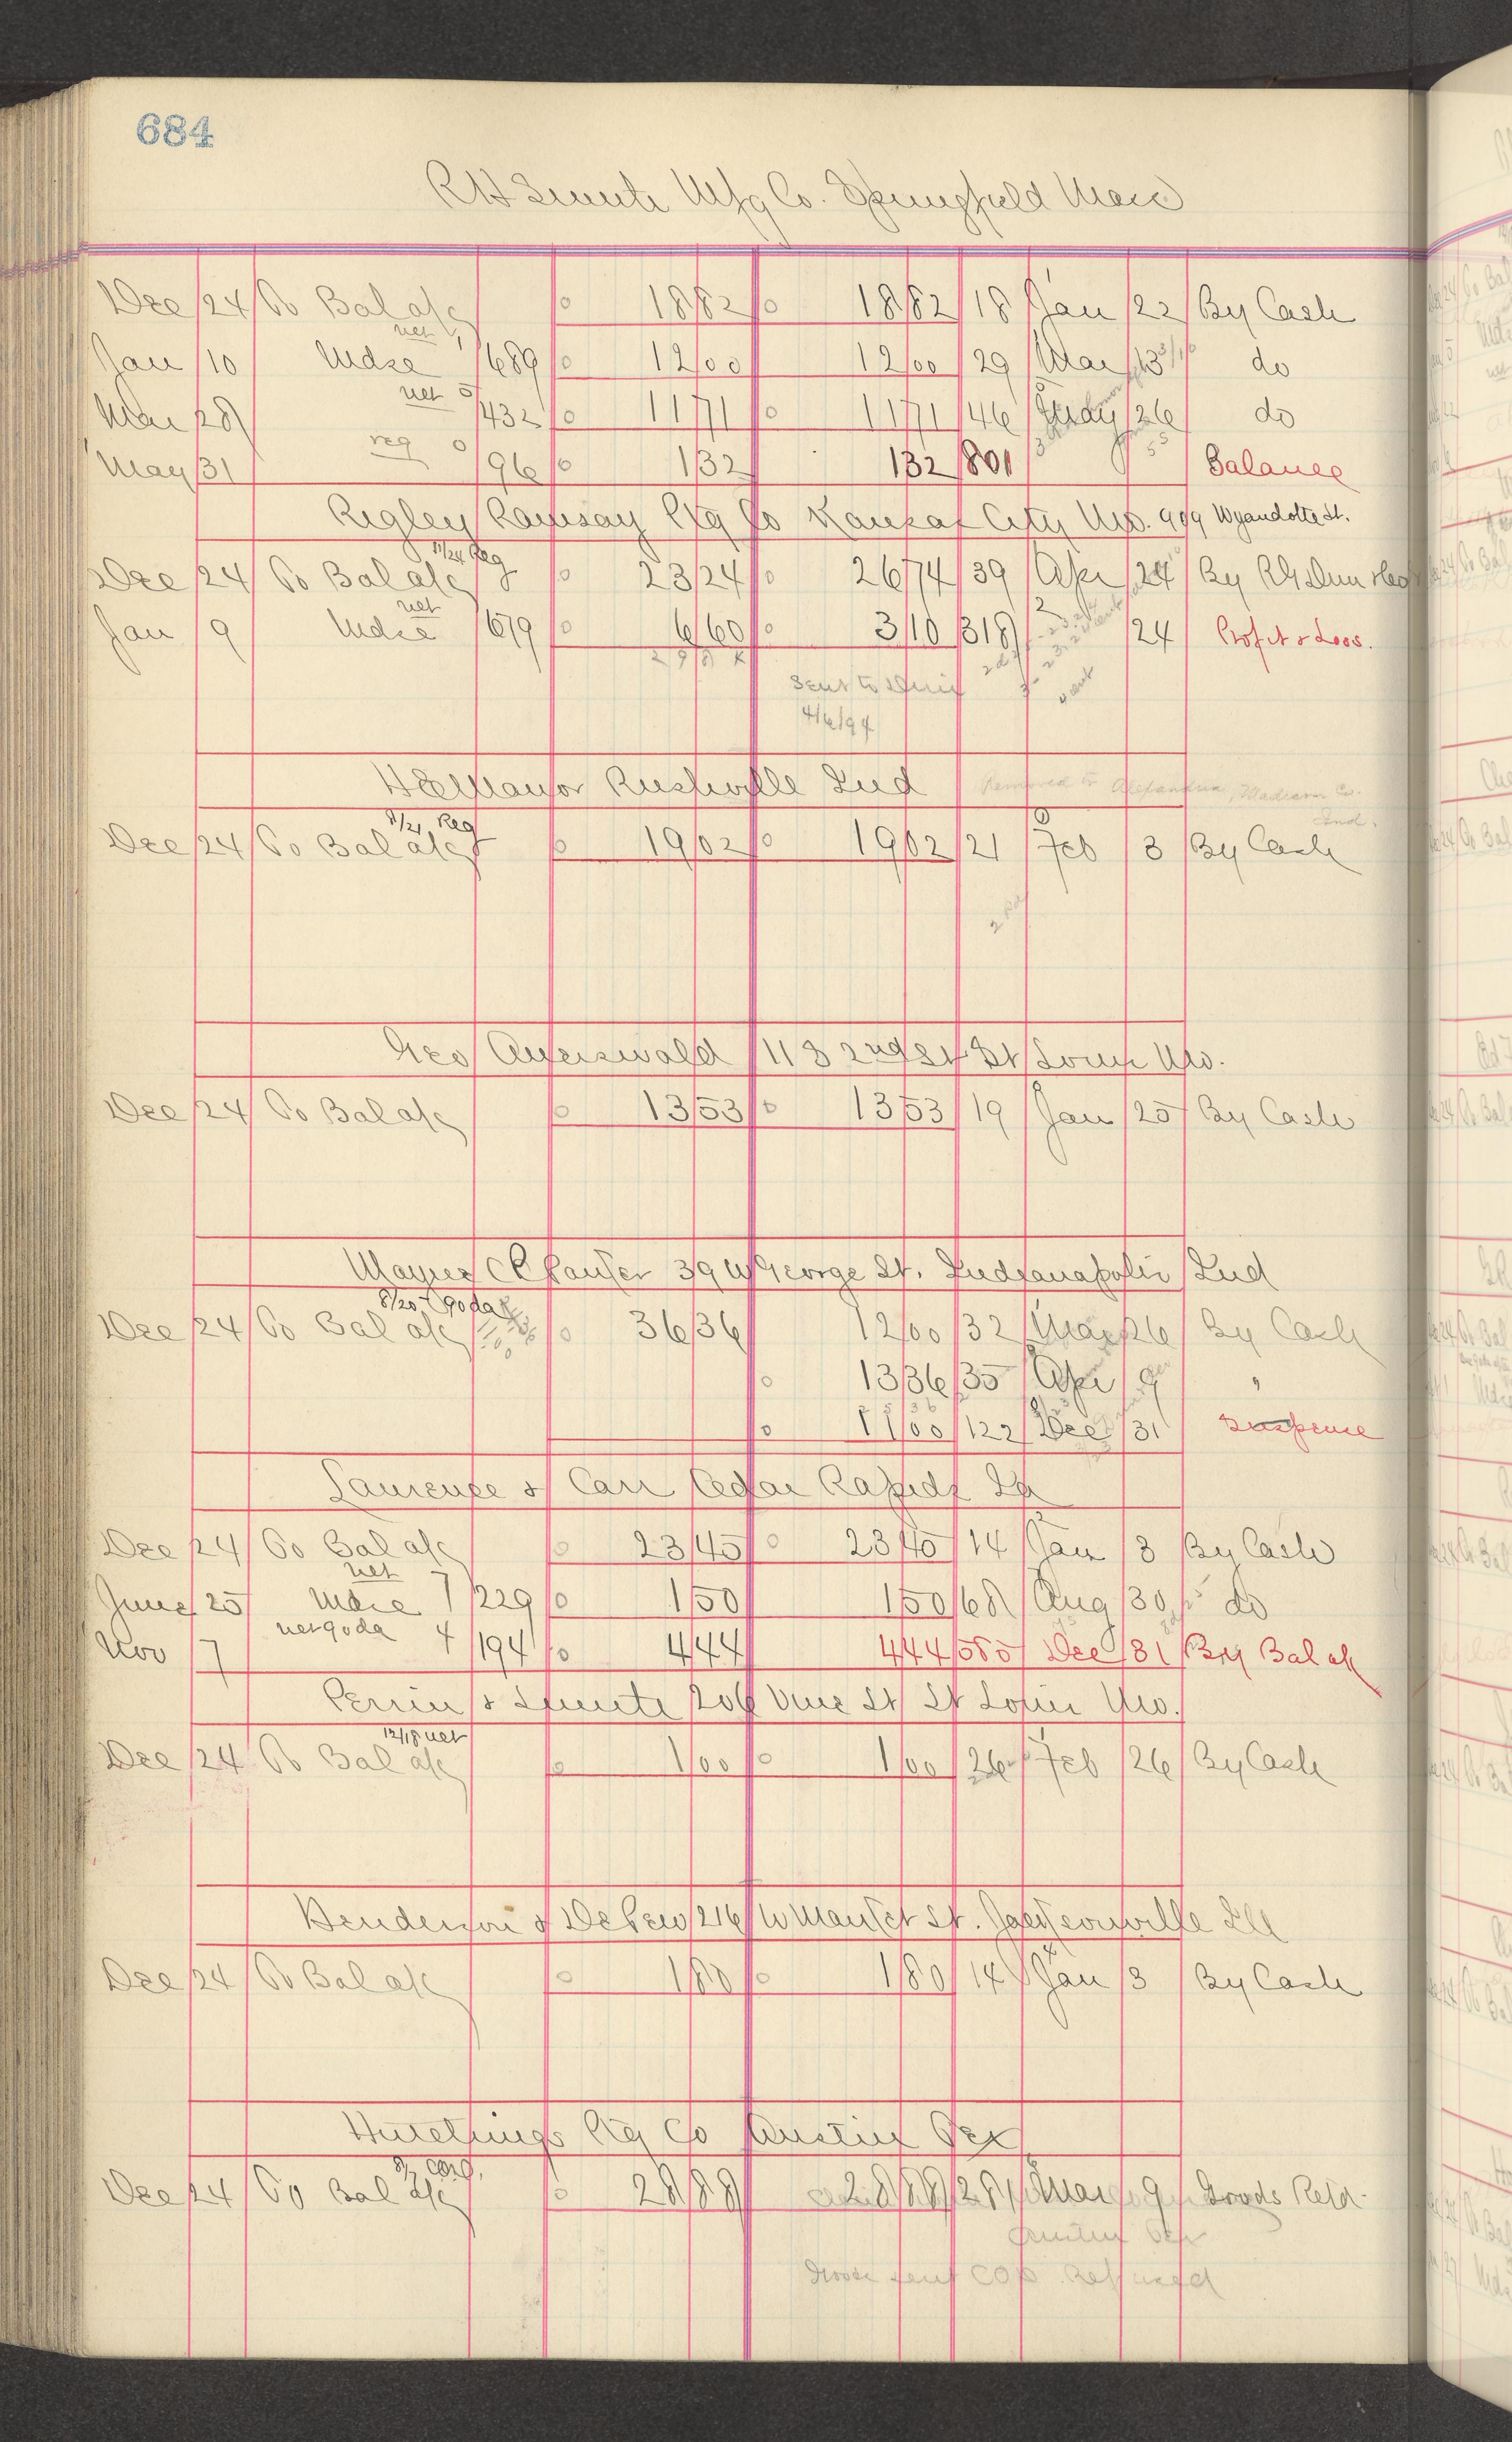 684
RH Smith Mfg Co. Springfield Mass
Dec 24 To Bal a/c 18 82 18 82 18 Jan 22 By Cash
net
Jan 10 Mdse 689 12 00 12 00 29 Mar 13 do
net
Mar 28 432 11 71 11 71 46 May 26 do
reg
May 31 96 1 32 1 32 801 Balance
Rigley Ramsay Ptg Co Kansas City Mo. 909 Wyandotte St.
11/24 Reg
Dec 24 To Bal a/c 23 24 26 74 39 Apr 24 By RG Dun & Co
net
Jan 9 Mdse 679 6 60 3 10 318 24 Profit & Loss.
29 8 4
Sent to Dun
4/6/94
H E Mansor Rushville Ind Removed to Alexandria, Madison Co. Ind.
Reg
Dec 24 To Bal a/c 19 02 19 02 21 Feb 3 By Cash
2 Pd
Geo Auferswald 11 S 2nd St St Louis Mo.
Dec 24 To Bal a/c 13 53 13 53 19 Jan 25 By Cash
39 W George St. Indianapolis Ind
8/20 90 da
Dec 24 To Bal a/c 36 36 12 00 32 Mar 26 By Cash
13 36 35 Apr 9 "
11 00 122 Dec 31 Suspense
Laurence & Carr Cedar Rapids Ia
Dec 24 To Bal a/c 23 45 23 45 14 Jan 3 By Cash
net
June 25 Mdse 7 229 1 50 1 50 68 Aug 30 do
net 90 da
Nov 7 4 194 4 44 4 44 585 Dec 31 By Bal a/c
Perrin & Smith 206 Vine St St Louis Mo.
12/18 net
Dec 24 To Bal a/c 1 00 1 00 26 Feb 26 By Cash
Henderson & DePew 216 W Market St. Jacksonville Ill
Dec 24 To Bal a/c 1 80 1 80 14 Jan 3 By Cash
Hutchings Ptg Co Austin Tex
Dec 24 To Bal a/c 28 88 28 88 281 Mar 9 Goods Retd.
Austin Tex
Goods sent COD Refused